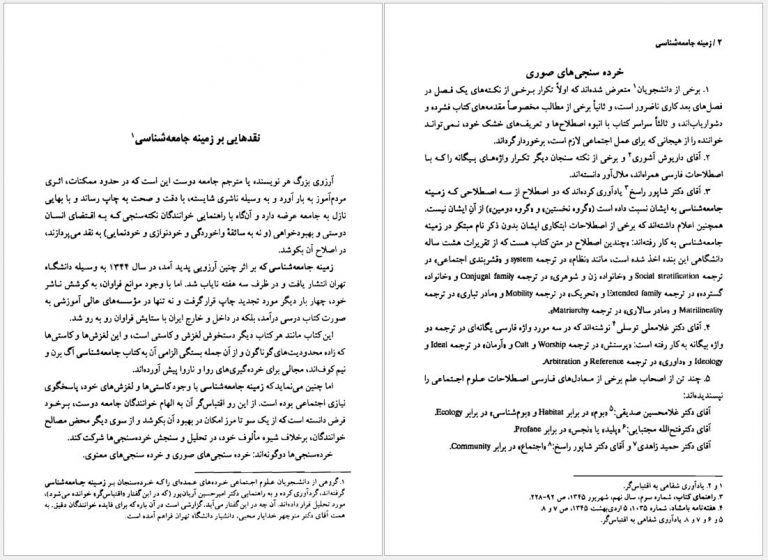 نقدهایی بر زمینه جامعه‌شناسی۱
آرزوی بزرگ هر نویسنده یا مترجم جامعه دوست این است که در حدود ممکنات، اثری
مردم‌آموز به بار آورد و به وسیله ناشری شایسته، با دقت و صحت به چاپ رساند و با بهایی
نازل به جامعه عرضه دارد و آن‌گاه با راهنمایی خوانندگان نکته‌سنجی که به اقتضای انسان
دوستی و بهبودخواهی (و نه به سائقهٔ واخوردگی و خودنوازی و خودنمایی) به نقد می‌پردازند،
در اصلاح آن بکوشد.
زمینه جامعه‌شناسی که بر اثر چنین آرزویی پدید آمد، در سال ۱۳۴۴ به وسیله دانشگاه
تهران انتشار یافت و در ظرف سه هفته نایاب شد. اما با وجود موانع فراوان، به کوشش ناشر
خود، چهار بار دیگر مورد تجدید چاپ قرار گرفت و نه تنها در مؤسسه‌های عالی آموزشی به
صورت کتاب درسی درآمد، بلکه در داخل و خارج ایران با ستایش فراوان رو به رو شد.
این کتاب مانند هر کتاب دیگر دستخوش لغزش و کاستی است، و این لغزش‌ها و کاستی‌ها
که زاده محدودیت‌های گوناگون و از آن جمله بستگی الزامی آن به کتاب جامعه‌شناسی آگ برن و
نیم کوف‌اند، مجالی برای خرده‌گیری‌های روا و ناروا پیش آورده‌اند.
اما چنین می‌نماید که زمینه جامعه‌شناسی با وجود کاستی‌ها و لغزش‌های خود، پاسخگوی
نیازی اجتماعی بوده است. از این رو اقتباس‌گر آن به الهام خوانندگان جامعه دوست، برخود
فرض دانسته است که از یک سو تا مرز امکان در بهبود آن بکوشد و از سوی دیگر محض مصالح
خوانندگان، برخلاف شیوه مألوف خود، در تحلیل و سنجش خرده‌سنجی‌ها شرکت کند.
خرده‌سنجی‌ها دوگونه‌اند: خرده سنجی‌های صوری و خرده سنجی‌های معنوی.
۱. گروهی از دانشجویان علوم اجتماعی خرده‌های عمده‌ای را که خرده‌سنجان بر زمینه جامعه‌شناسی
گرفته‌اند، گردآوری کرده و به راهنمایی دکتر امیرحسین آریان‌پور (که در این گفتار «اقتباس‌گر» خوانده می‌شود)،
مورد تحلیل قرار داده‌اند. آن چه در این گفتار می‌آید، گزارشی است در آن باره که برای فایده خوانندگان دقیق، به
همت آقای دکتر منوچهر خدایار محبی، دانشیار دانشگاه تهران فراهم آمده است.
۲ / زمینه جامعه‌شناسی
خرده سنجی‌های صوری
۱. برخی از دانشجویان۱ متعرض شده‌اند که اولاً تکرار برخی از نکته‌های یک فصل در
فصل‌های بعد کاری ناضرور است، و ثانیاً برخی از مطالب مخصوصاً مقدمه‌های کتاب فشرده و
دشواریاب‌اند، و ثالثاً سراسر کتاب با انبوه اصطلاح‌ها و تعریف‌های خشک خود، نمی‌تواند
خواننده را از هیجانی که برای عمل اجتماعی لازم است، برخوردار گرداند.
۲. آقای داریوش آشوری۲ و برخی از نکته سنجان دیگر تکرار واژه‌های بیگانه را که با
اصطلاحات فارسی همراه‌اند، ملال‌آور دانسته‌اند.
۳. آقای دکتر شاپور راسخ۳ یادآوری کرده‌اند که دو اصطلاح از سه اصطلاحی که زمینه
جامعه‌شناسی به ایشان نسبت داده است («گروه نخستین» و «گروه دومین») از آنِ ایشان نیست.
همچنین اعلام داشته‌اند که برخی از اصطلاحات ابتکاری ایشان بدون ذکر نام مبتکر در زمینه
جامعه‌شناسی به کار رفته‌اند: «چندین اصطلاح در متن کتاب هست که از تقریرات هشت ساله
دانشگاهی این بنده اخذ شده است، مانند «نظام» در ترجمه system و «قشربندی اجتماعی» در
ترجمه Social stratification و «خانواده زن و شوهری» در ترجمه Conjugal family و «خانواده
گسترده» در ترجمه Extended family و «تحریک» در ترجمه Mobility و «مادر تباری» در ترجمه
Matrilineality و «مادر سالاری» در ترجمه Matriarchy».
۴. آقای دکتر غلامعلی توسلی۴ نوشته‌اند که در سه مورد واژه فارسی یگانه‌ای در ترجمه دو
واژه بیگانه به کار رفته است: «پرستش» در ترجمه Worship و Cult و «آرمان» در ترجمه Ideal و
Ideology و «داوری» در ترجمه Reference و Arbitration.
۵. چند تن از اصحاب علم برخی از معادل‌های فارسی اصطلاحات علوم اجتماعی را
نپسندیده‌اند:
آقای دکتر غلامحسین صدیقی:۵ «بوم» در برابر Habitat و «بوم‌شناسی» در برابر Ecology.
آقای دکتر فتح‌الله مجتبایی:۶ «پلید» یا «نجس» در برابر Profane.
آقای دکتر حمید زاهدی۷ و آقای دکتر شاپور راسخ:۸ «اجتماع» در برابر Community.
۱ و ۲. یادآوری شفاهی به اقتباس‌گر.
۳. راهنمای کتاب، شماره سوم، سال نهم، شهریور ۱۳۴۵، ص ۹۲-۲۲۸.
۴. هفته‌نامه بامشاد، شماره ۱۰۳۵، ۵ اردی‌بهشت ۱۳۴۵، ص ۷ و ۸.
۵ و ۶ و ۷ و ۸. یادآوری شفاهی به اقتباس‌گر.